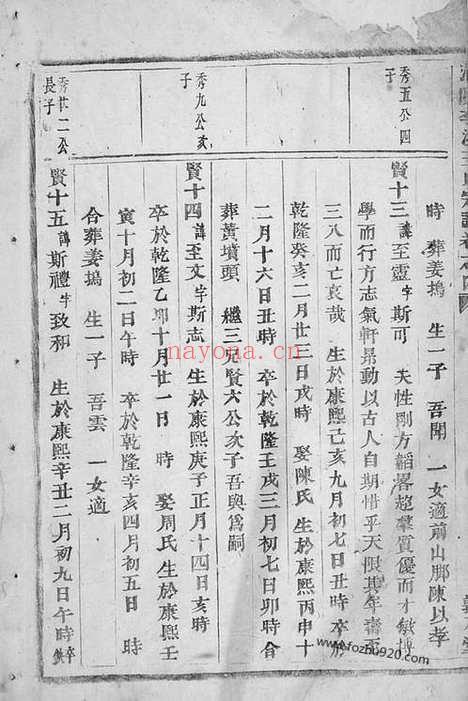 時 葬姜塢 生一子 吾開 一女適前山脚陳以孝
秀五公四
子
賢十三 諱至靈 字斯可 夫性剛方韜畧超羣質優而才敏博
學而行方志氣軒昂動以古人自期惜乎天限其年壽
三八而亡哀哉 生於康熙己亥九月初七日丑時 卒於
乾隆癸亥二月廿三日戌時 娶陳氏 生於康熙丙申十
二月十六日丑時 卒於乾隆壬戌三月初七日卯時 合
葬黃墳頭 繼三兄賢六公次子吾與為嗣
秀九公次
子
賢十四 諱至文 字斯志 生於康熙庚子正月十四日亥時
卒於乾隆乙卯十月廿一日 時 娶周氏 生於康熙壬
寅十月初二日午時 卒於乾隆辛亥四月初五日 時
合葬姜塢 生一子 吾雲 一女適
秀廿二公
長子
賢十五 諱斯禮 字致和 生於康熙辛丑二月初九日午時 卒
nayona.cn
www.fozhu920.com